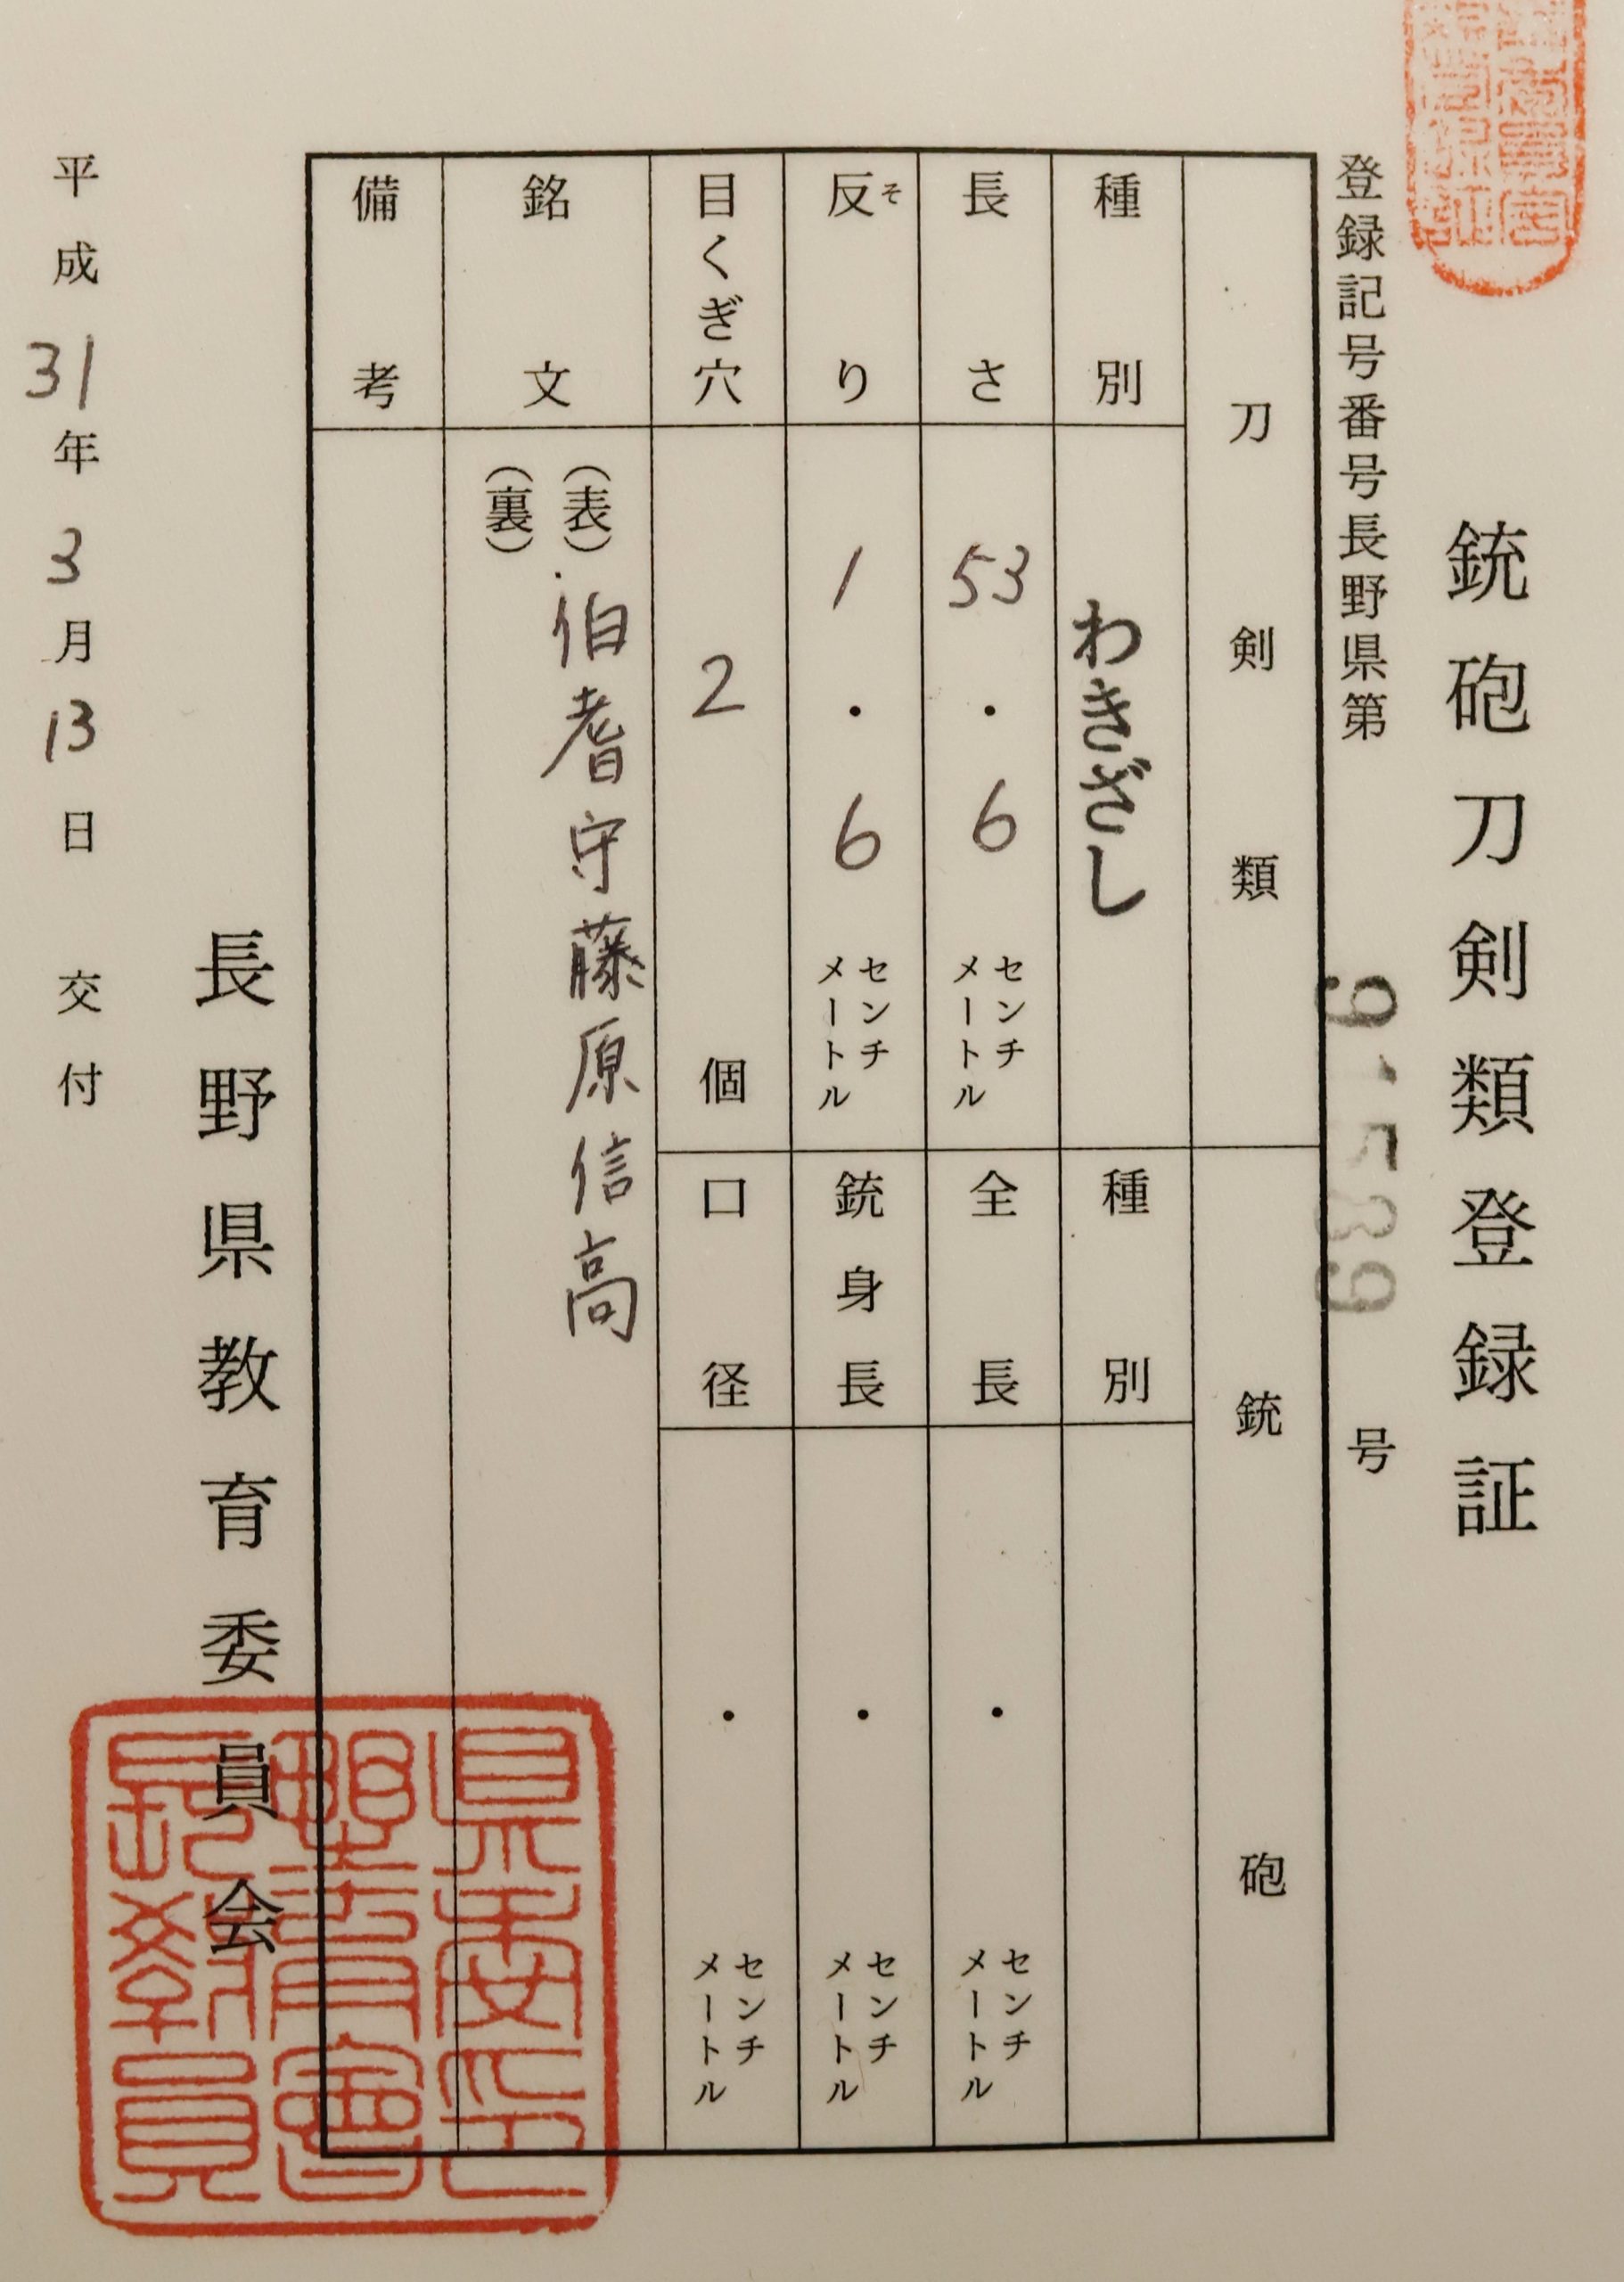 銃砲刀剣類登録証
登録記号番号長野県第 91589 号
刀剣類
銃砲
種別
わきざし
種別
長さ
53・6
センチメートル
全長
・
センチメートル
反り
そ
1・6
センチメートル
銃身長
・
センチメートル
目くぎ穴
2
個
口径
・
センチメートル
銘文
(表)伯耆守藤原信高
(裏)
備考
長野県教育委員会
平成31年3月13日交付